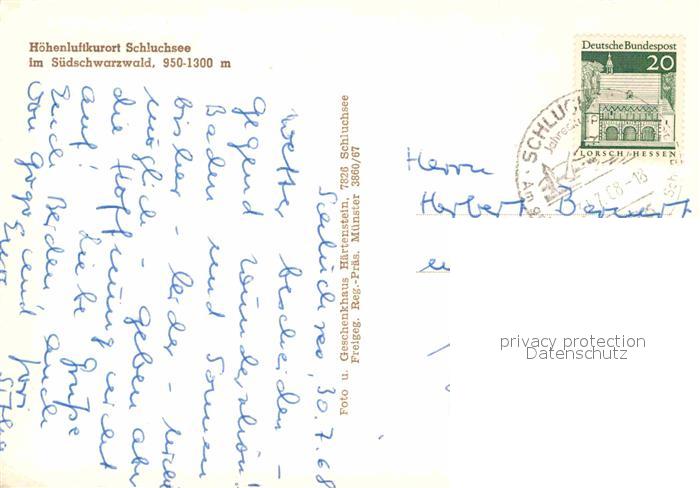 Höhenluftkurort Schluchsee
im Südschwarzwald, 950-1300 m
Deutsche Bundespost
20
LORSCH/HESSEN
SCHLUCH
Foto u. Geschenkhaus Härtenstein, 7826 Schluchsee
Freigeg. Reg.-Präs. Münster 3860/67
Schluchsee, 30.7.68
Wetter bescheiden -
Gegend wunderschön!
Baden und Sonnen
bisher - leider - nicht
möglich - geben aber
die Hoffnung nicht
auf! Liebe Grüße
Euch Beiden auch
von
Herrn
Herbert
privacy protection
Datenschutz